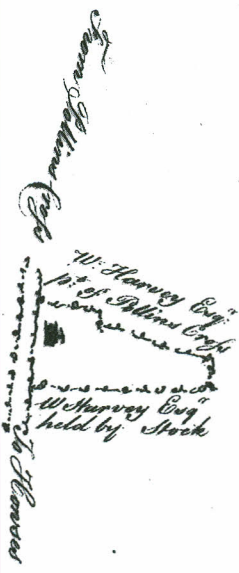 From Pollins Cross
W. Harvey Esqr.
pt. of Pollins Cross
W Harvey Esqr
held by Stock
To Howses